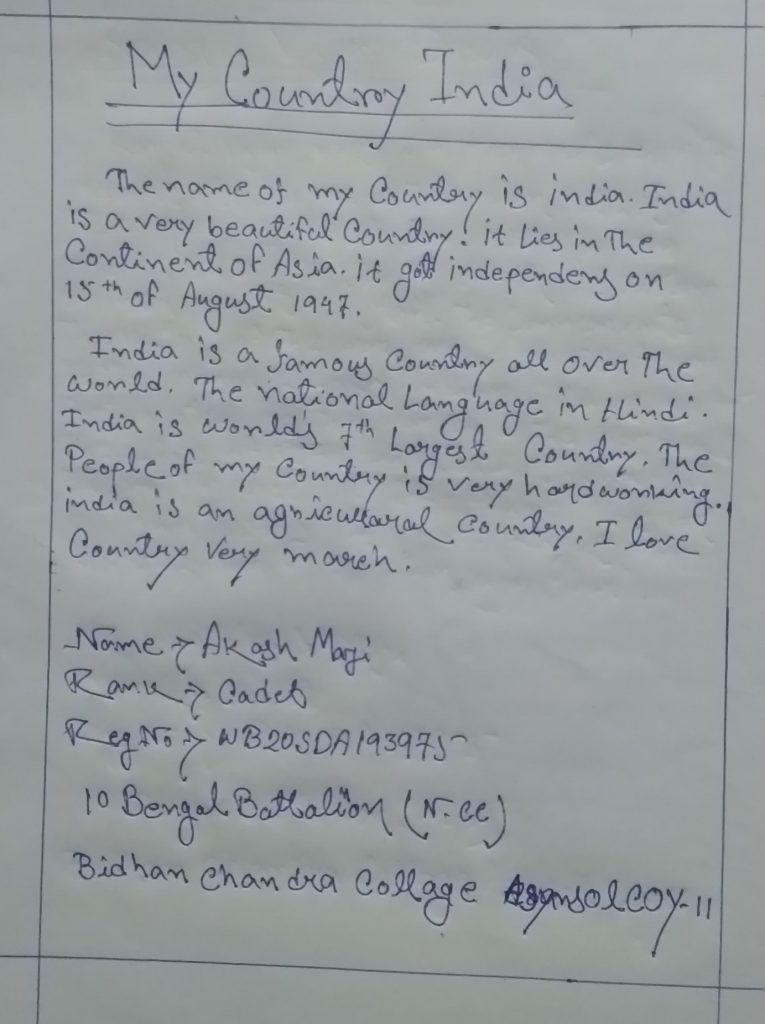 My Countroy India
The name of my Country is india. India
is a very beautiful Country. it lies in The
Continent of Asia. it got independens on
15th of August 1947.
India is a famous Country all over The
world. The national Language in Hindi.
India is world's 7th Largest Country. The
People of my Country is very hardworking.
india is an agricultaral country. I love
Country very march.
Name → Akash Maji
Rank → Cadet
Reg No → WB20SDA193975
10 Bengal Battalion (N.CC)
Bidhan Chandra Collage Asansol COY-11